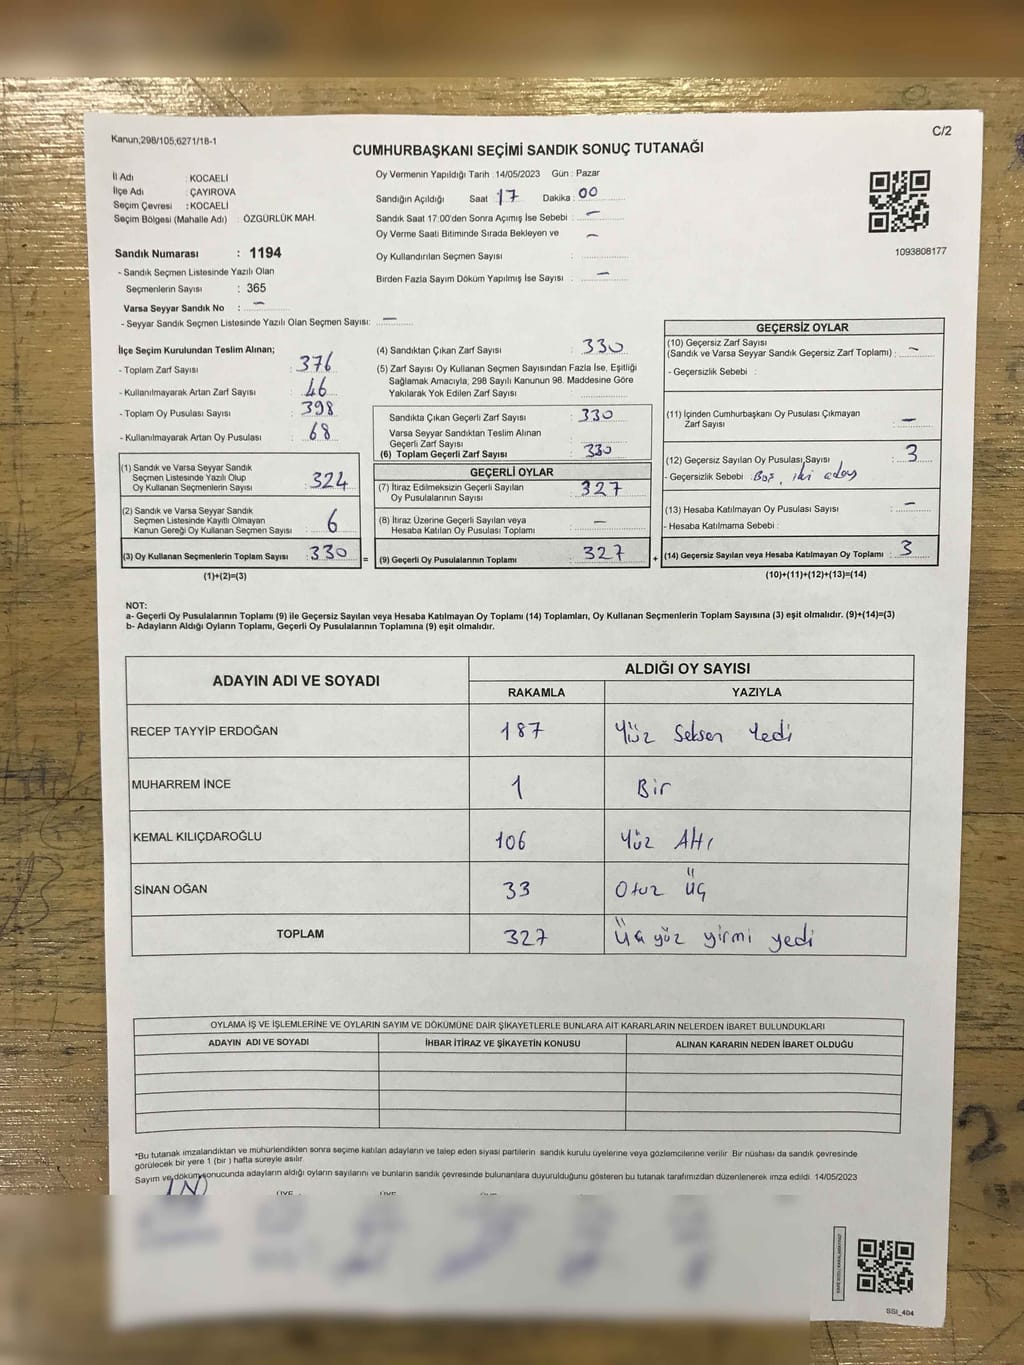 Kanun,298/105,6271/18-1
C/2
CUMHURBAŞKANI SEÇİMİ SANDIK SONUÇ TUTANAĞI
İl Adı : KOCAELİ
İlçe Adı : ÇAYIROVA
Seçim Çevresi : KOCAELİ
Seçim Bölgesi (Mahalle Adı) : ÖZGÜRLÜK MAH.
Sandık Numarası : 1194
- Sandık Seçmen Listesinde Yazılı Olan
Seçmenlerin Sayısı : 365
Varsa Seyyar Sandık No : –
- Seyyar Sandık Seçmen Listesinde Yazılı Olan Seçmen Sayısı: –
Oy Vermenin Yapıldığı Tarih : 14/05/2023 Gün : Pazar
Sandığın Açıldığı Saat 17 Dakika : 00
Sandık Saat 17:00'den Sonra Açımış İse Sebebi : –
Oy Verme Saati Bitiminde Sırada Bekleyen ve –
Oy Kullandırılan Seçmen Sayısı :
Birden Fazla Sayım Döküm Yapılmış İse Sayısı : –
1093808177
İlçe Seçim Kurulundan Teslim Alınan;
- Toplam Zarf Sayısı : 376
- Kullanılmayarak Artan Zarf Sayısı : 46
- Toplam Oy Pusulası Sayısı : 398
- Kullanılmayarak Artan Oy Pusulası : 68
(1) Sandık ve Varsa Seyyar Sandık
Seçmen Listesinde Yazılı Olup
Oy Kullanan Seçmenlerin Sayısı : 324
(2) Sandık ve Varsa Seyyar Sandık
Seçmen Listesinde Kayıtlı Olmayan
Kanun Gereği Oy Kullanan Seçmen Sayısı : 6
(3) Oy Kullanan Seçmenlerin Toplam Sayısı : 330 =
(1)+(2)=(3)
(4) Sandıktan Çıkan Zarf Sayısı : 330
(5) Zarf Sayısı Oy Kullanan Seçmen Sayısından Fazla İse, Eşitliği
Sağlamak Amacıyla, 298 Sayılı Kanunun 98. Maddesine Göre
Yakılarak Yok Edilen Zarf Sayısı :
Sandıkta Çıkan Geçerli Zarf Sayısı : 330
Varsa Seyyar Sandıktan Teslim Alınan
Geçerli Zarf Sayısı :
(6) Toplam Geçerli Zarf Sayısı : 330
GEÇERLİ OYLAR
(7) İtiraz Edilmeksizin Geçerli Sayılan
Oy Pusulalarının Sayısı : 327
(8) İtiraz Üzerine Geçerli Sayılan veya
Hesaba Katılan Oy Pusulası Toplamı : –
(9) Geçerli Oy Pusulalarının Toplamı : 327 +
GEÇERSİZ OYLAR
(10) Geçersiz Zarf Sayısı
(Sandık ve Varsa Seyyar Sandık Geçersiz Zarf Toplamı) : –
- Geçersizlik Sebebi :
(11) İçinden Cumhurbaşkanı Oy Pusulası Çıkmayan
Zarf Sayısı : –
(12) Geçersiz Sayılan Oy Pusulası Sayısı : 3
- Geçersizlik Sebebi : Boş, iki aday
(13) Hesaba Katılmayan Oy Pusulası Sayısı : –
- Hesaba Katılmama Sebebi :
(14) Geçersiz Sayılan veya Hesaba Katılmayan Oy Toplamı : 3
(10)+(11)+(12)+(13)=(14)
NOT:
a- Geçerli Oy Pusulalarının Toplamı (9) ile Geçersiz Sayılan veya Hesaba Katılmayan Oy Toplamı (14) Toplamları, Oy Kullanan Seçmenlerin Toplam Sayısına (3) eşit olmalıdır. (9)+(14)=(3)
b- Adayların Aldığı Oyların Toplamı, Geçerli Oy Pusulalarının Toplamına (9) eşit olmalıdır.
ADAYIN ADI VE SOYADI
ALDIĞI OY SAYISI
RAKAMLA YAZIYLA
RECEP TAYYİP ERDOĞAN 187 Yüz Seksen Yedi
MUHARREM İNCE 1 Bir
KEMAL KILIÇDAROĞLU 106 Yüz Altı
SİNAN OĞAN 33 Otuz Üç
TOPLAM 327 Üç yüz yirmi yedi
OYLAMA İŞ VE İŞLEMLERİNE VE OYLARIN SAYIM VE DÖKÜMÜNE DAİR ŞİKAYETLERLE BUNLARA AİT KARARLARIN NELERDEN İBARET BULUNDUKLARI
ADAYIN ADI VE SOYADI İHBAR İTİRAZ VE ŞİKAYETİN KONUSU ALINAN KARARIN NEDEN İBARET OLDUĞU
*Bu tutanak imzalandıktan ve mühürlendikten sonra seçime katılan adayların ve talep eden siyasi partilerin sandık kurulu üyelerine veya gözlemcilerine verilir. Bir nüshası da sandık çevresinde
görülecek bir yere 1 (bir) hafta süreyle asılır.
Sayım ve döküm sonucunda adayların aldığı oyların sayılarını ve bunların sandık çevresinde bulunanlara duyurulduğunu gösteren bu tutanak tarafımızdan düzenlenerek imza edildi. 14/05/2023
SSI_404